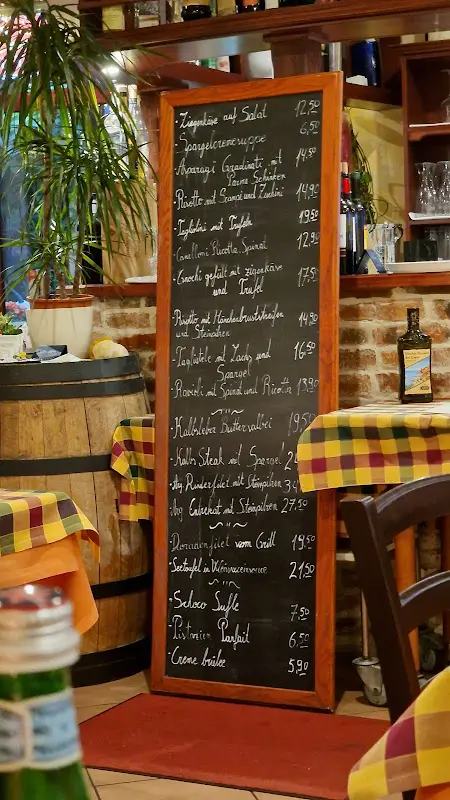 - Ziegenkäse auf Salat 12,50
- Spargelcremesuppe 6,50
- Asparagi Gradinati mit 14,50
Parma Schinken
Risotto mit Scampi und Zuchini 14,90
- Tagliolini mit Trüfeln 19,50
- Canelloni Ricotta, Spinat 12,90
- Gnochi gefüllt mit zigenkäse 17,50
und Trüfel
Risotto mit Hänchenbruststreifen 14,90
und Steinpilzen
- Tagliatele mit Lachs und 16,50
Spargel
- Ravioli mit Spinat und Ricotta 13,90
- Kalbsleber Butter salbei 19,50
- Kalbs Steak mit Spargel
- Arg Rinderfilet mit Steinpilzen
- Arg Entrekot mit Steinpilzen 27,50
- Doradenfilet vom Grill 19,50
- Seeteufel in Weinsauce 21,50
- Schoco Sufle 7,50
- Pistazien Parfait 6,50
- Creme brulee 5,90